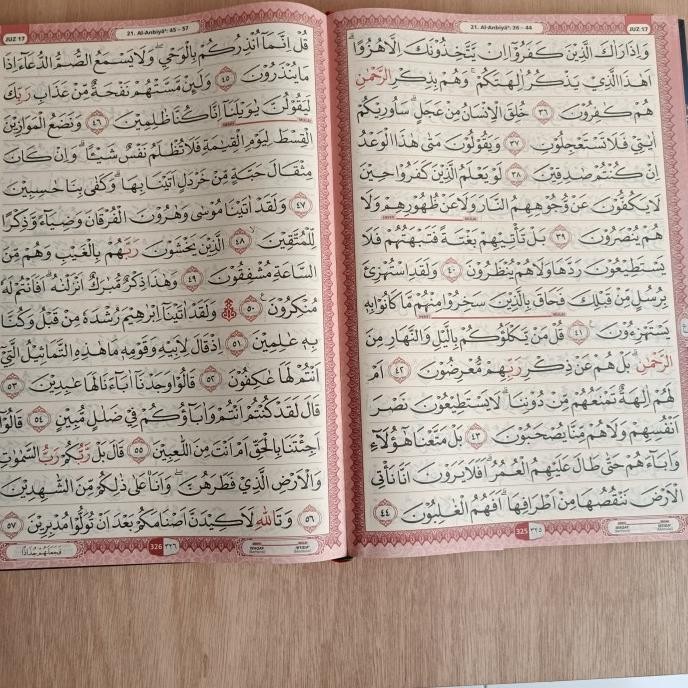 21. Al-Anbiyāʾ: 36 – 44 JUZ 17
وَاِذَا رَاٰكَ الَّذِيْنَ كَفَرُوْٓا اِنْ يَّتَّخِذُوْنَكَ اِلَّا هُزُوًاۗ
اَهٰذَا الَّذِيْ يَذْكُرُ اٰلِهَتَكُمْۚ وَهُمْ بِذِكْرِ الرَّحْمٰنِ
هُمْ كٰفِرُوْنَ ٣٦ خُلِقَ الْاِنْسَانُ مِنْ عَجَلٍۗ سَاُورِيْكُمْ
اٰيٰتِيْ فَلَا تَسْتَعْجِلُوْنِ ٣٧ وَيَقُوْلُوْنَ مَتٰى هٰذَا الْوَعْدُ
اِنْ كُنْتُمْ صٰدِقِيْنَ ٣٨ لَوْ يَعْلَمُ الَّذِيْنَ كَفَرُوْا حِيْنَ
لَا يَكُفُّوْنَ عَنْ وُّجُوْهِهِمُ النَّارَ وَلَا عَنْ ظُهُوْرِهِمْ وَلَا
هُمْ يُنْصَرُوْنَ ٣٩ بَلْ تَأْتِيْهِمْ بَغْتَةً فَتَبْهَتُهُمْ فَلَا
يَسْتَطِيْعُوْنَ رَدَّهَا وَلَا هُمْ يُنْظَرُوْنَ ٤٠ وَلَقَدِ اسْتُهْزِئَ
بِرُسُلٍ مِّنْ قَبْلِكَ فَحَاقَ بِالَّذِيْنَ سَخِرُوْا مِنْهُمْ مَّا كَانُوْا بِهٖ
يَسْتَهْزِءُوْنَ ٤١ قُلْ مَنْ يَّكْلَؤُكُمْ بِالَّيْلِ وَالنَّهَارِ مِنَ
الرَّحْمٰنِۗ بَلْ هُمْ عَنْ ذِكْرِ رَبِّهِمْ مُّعْرِضُوْنَ ٤٢ اَمْ
لَهُمْ اٰلِهَةٌ تَمْنَعُهُمْ مِّنْ دُوْنِنَاۗ لَا يَسْتَطِيْعُوْنَ نَصْرَ
اَنْفُسِهِمْ وَلَا هُمْ مِّنَّا يُصْحَبُوْنَ ٤٣ بَلْ مَتَّعْنَا هٰٓؤُلَاۤءِ
وَاٰبَاۤءَهُمْ حَتّٰى طَالَ عَلَيْهِمُ الْعُمُرُۗ اَفَلَا يَرَوْنَ اَنَّا نَأْتِى
الْاَرْضَ نَنْقُصُهَا مِنْ اَطْرَافِهَاۗ اَفَهُمُ الْغٰلِبُوْنَ ٤٤
325 ٣٢٥
21. Al-Anbiyāʾ: 45 – 57 JUZ 17
قُلْ اِنَّمَآ اُنْذِرُكُمْ بِالْوَحْيِۖ وَلَا يَسْمَعُ الصُّمُّ الدُّعَاۤءَ اِذَا
مَا يُنْذَرُوْنَ ٤٥ وَلَىِٕنْ مَّسَّتْهُمْ نَفْحَةٌ مِّنْ عَذَابِ رَبِّكَ
لَيَقُوْلُنَّ يٰوَيْلَنَآ اِنَّا كُنَّا ظٰلِمِيْنَ ٤٦ وَنَضَعُ الْمَوَازِيْنَ
الْقِسْطَ لِيَوْمِ الْقِيٰمَةِ فَلَا تُظْلَمُ نَفْسٌ شَيْـًٔاۗ وَاِنْ كَانَ
مِثْقَالَ حَبَّةٍ مِّنْ خَرْدَلٍ اَتَيْنَا بِهَاۗ وَكَفٰى بِنَا حَاسِبِيْنَ
٤٧ وَلَقَدْ اٰتَيْنَا مُوْسٰى وَهٰرُوْنَ الْفُرْقَانَ وَضِيَاۤءً وَّذِكْرًا
لِّلْمُتَّقِيْنَۙ ٤٨ الَّذِيْنَ يَخْشَوْنَ رَبَّهُمْ بِالْغَيْبِ وَهُمْ مِّنَ
السَّاعَةِ مُشْفِقُوْنَ ٤٩ وَهٰذَا ذِكْرٌ مُّبٰرَكٌ اَنْزَلْنٰهُۗ اَفَاَنْتُمْ لَهٗ
مُنْكِرُوْنَ ٥٠ ۞ وَلَقَدْ اٰتَيْنَآ اِبْرٰهِيْمَ رُشْدَهٗ مِنْ قَبْلُ وَكُنَّا
بِهٖ عٰلِمِيْنَ ٥١ اِذْ قَالَ لِاَبِيْهِ وَقَوْمِهٖ مَا هٰذِهِ التَّمَاثِيْلُ الَّتِيْٓ
اَنْتُمْ لَهَا عٰكِفُوْنَ ٥٢ قَالُوْا وَجَدْنَآ اٰبَاۤءَنَا لَهَا عٰبِدِيْنَ ٥٣
قَالَ لَقَدْ كُنْتُمْ اَنْتُمْ وَاٰبَاۤؤُكُمْ فِيْ ضَلٰلٍ مُّبِيْنٍ ٥٤ قَالُوْٓا
اَجِئْتَنَا بِالْحَقِّ اَمْ اَنْتَ مِنَ اللّٰعِبِيْنَ ٥٥ قَالَ بَلْ رَّبُّكُمْ رَبُّ السَّمٰوٰتِ
وَالْاَرْضِ الَّذِيْ فَطَرَهُنَّۖ وَاَنَا۠ عَلٰى ذٰلِكُمْ مِّنَ الشّٰهِدِيْنَ
٥٦ وَتَاللّٰهِ لَاَكِيْدَنَّ اَصْنَامَكُمْ بَعْدَ اَنْ تُوَلُّوْا مُدْبِرِيْنَ ٥٧
326 ٣٢٦
فَجَعَلَهُمْ جُذٰذًا